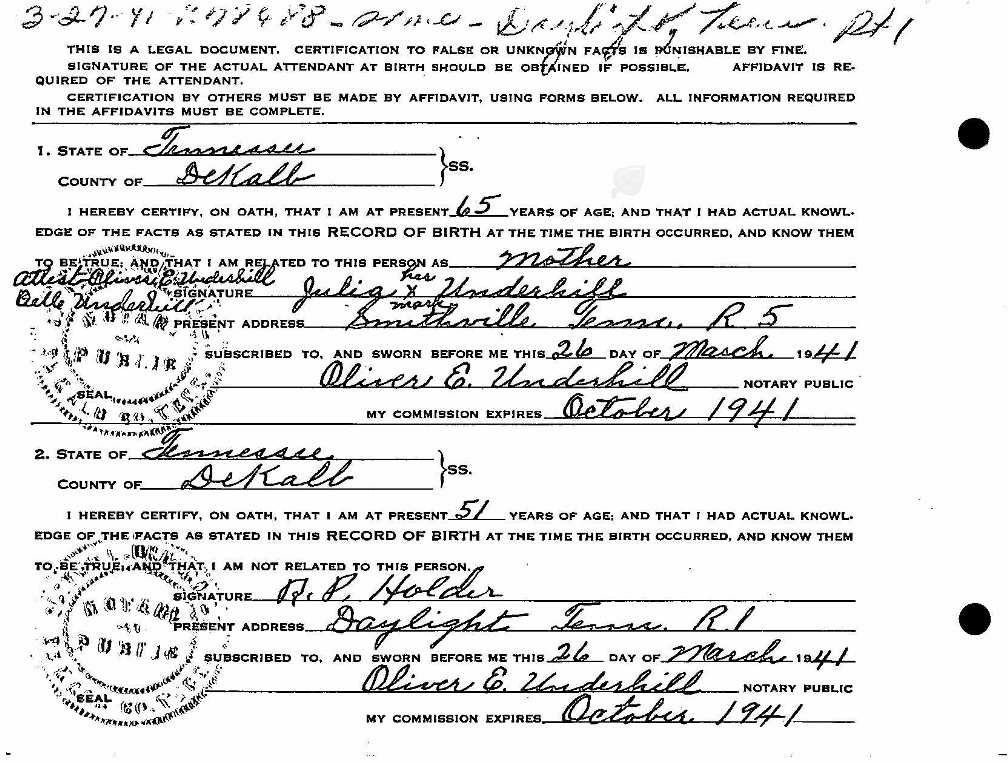 3-27-41 - Daylight, Tenn. Rt 1
THIS IS A LEGAL DOCUMENT. CERTIFICATION TO FALSE OR UNKNOWN FACTS IS PUNISHABLE BY FINE.
SIGNATURE OF THE ACTUAL ATTENDANT AT BIRTH SHOULD BE OBTAINED IF POSSIBLE. AFFIDAVIT IS RE-
QUIRED OF THE ATTENDANT.
CERTIFICATION BY OTHERS MUST BE MADE BY AFFIDAVIT, USING FORMS BELOW. ALL INFORMATION REQUIRED
IN THE AFFIDAVITS MUST BE COMPLETE.
1. STATE OF Tennessee
COUNTY OF DeKalb } SS.
I HEREBY CERTIFY, ON OATH, THAT I AM AT PRESENT 65 YEARS OF AGE; AND THAT I HAD ACTUAL KNOWL-
EDGE OF THE FACTS AS STATED IN THIS RECORD OF BIRTH AT THE TIME THE BIRTH OCCURRED, AND KNOW THEM
TO BE TRUE; AND THAT I AM RELATED TO THIS PERSON AS Mother
Attest Oliver E. Underhill
Belle Underhill
SIGNATURE Julia her x mark Underhill
PRESENT ADDRESS Smithville, Tenn. R 5
NOTARY PUBLIC
SUBSCRIBED TO, AND SWORN BEFORE ME THIS 26 DAY OF March 1941
Oliver E. Underhill NOTARY PUBLIC
SEAL
MY COMMISSION EXPIRES October 1941
2. STATE OF Tennessee
COUNTY OF DeKalb } SS.
I HEREBY CERTIFY, ON OATH, THAT I AM AT PRESENT 51 YEARS OF AGE; AND THAT I HAD ACTUAL KNOWL-
EDGE OF THE FACTS AS STATED IN THIS RECORD OF BIRTH AT THE TIME THE BIRTH OCCURRED, AND KNOW THEM
TO BE TRUE, AND THAT I AM NOT RELATED TO THIS PERSON.
SIGNATURE R. P. Holder
NOTARY PUBLIC
PRESENT ADDRESS Daylight Tenn. R 1
SUBSCRIBED TO, AND SWORN BEFORE ME THIS 26 DAY OF March 1941
Oliver E. Underhill NOTARY PUBLIC
SEAL
MY COMMISSION EXPIRES October 1941